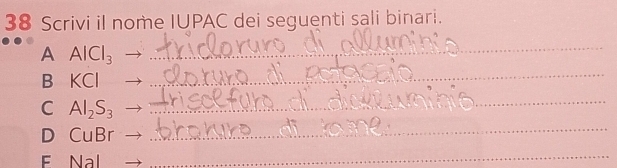 38 Scrivi il nome IUPAC dei seguenti sali binari.
A AlCl₃ → tricloruro di alluminio
B KCl → cloruro di potassio
C Al₂S₃ → trisolfuro di dialluminio
D CuBr → bromuro di rame
E NaI →